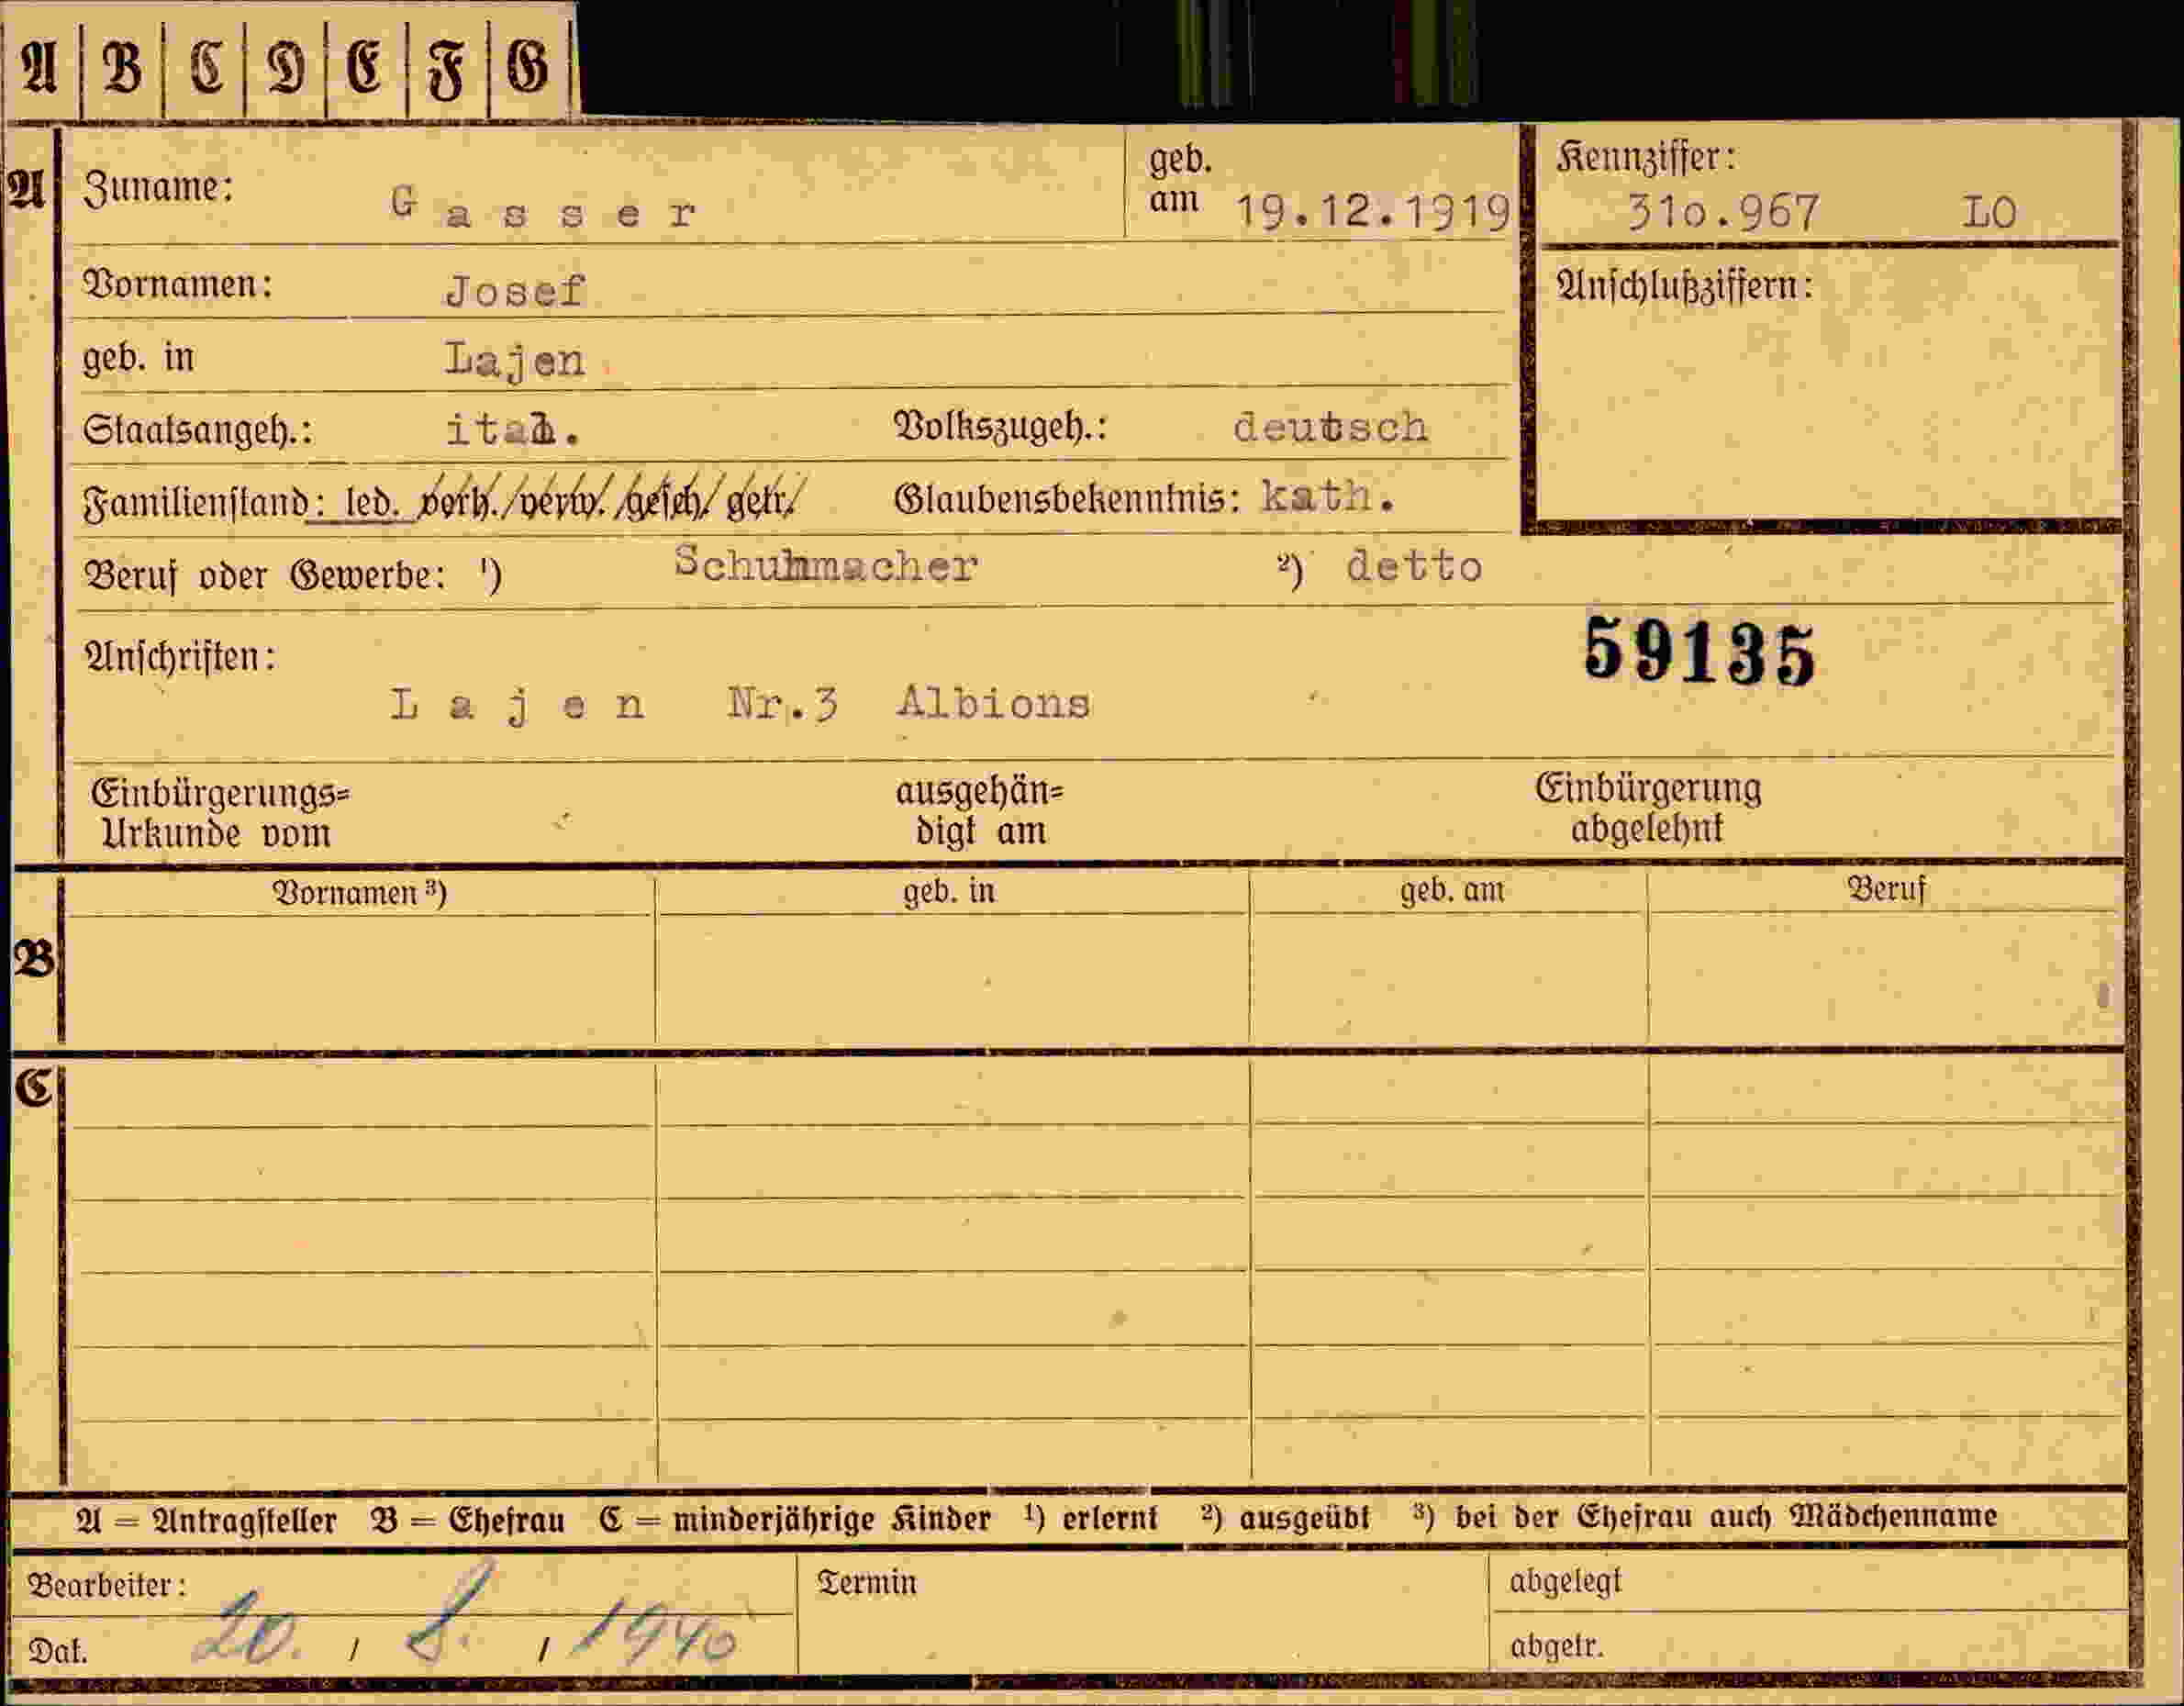 A B C D E F G
A Zuname: Gasser geb. am 19.12.1919 Kennziffer: 31o.967 LO
Vornamen: Josef Anschlußziffern:
geb. in Lajen
Staatsangeh.: ital. Volkszugeh.: deutsch
Familienstand: led. verh./verw./gesch/getr/ Glaubensbekenntnis: kath.
Beruf oder Gewerbe: ¹) Schuhmacher ²) detto
59135
Anschriften:
Lajen Nr.3 Albions
Einbürgerungs= ausgehän= Einbürgerung
Urkunde vom digt am abgelehnt
Vornamen ³) geb. in geb. am Beruf
B
C
A = Antragsteller B = Ehefrau C = minderjährige Kinder ¹) erlernt ²) ausgeübt ³) bei der Ehefrau auch Mädchenname
Bearbeiter: Termin abgelegt
Dat. 20. / 8. / 1940 abgetr.